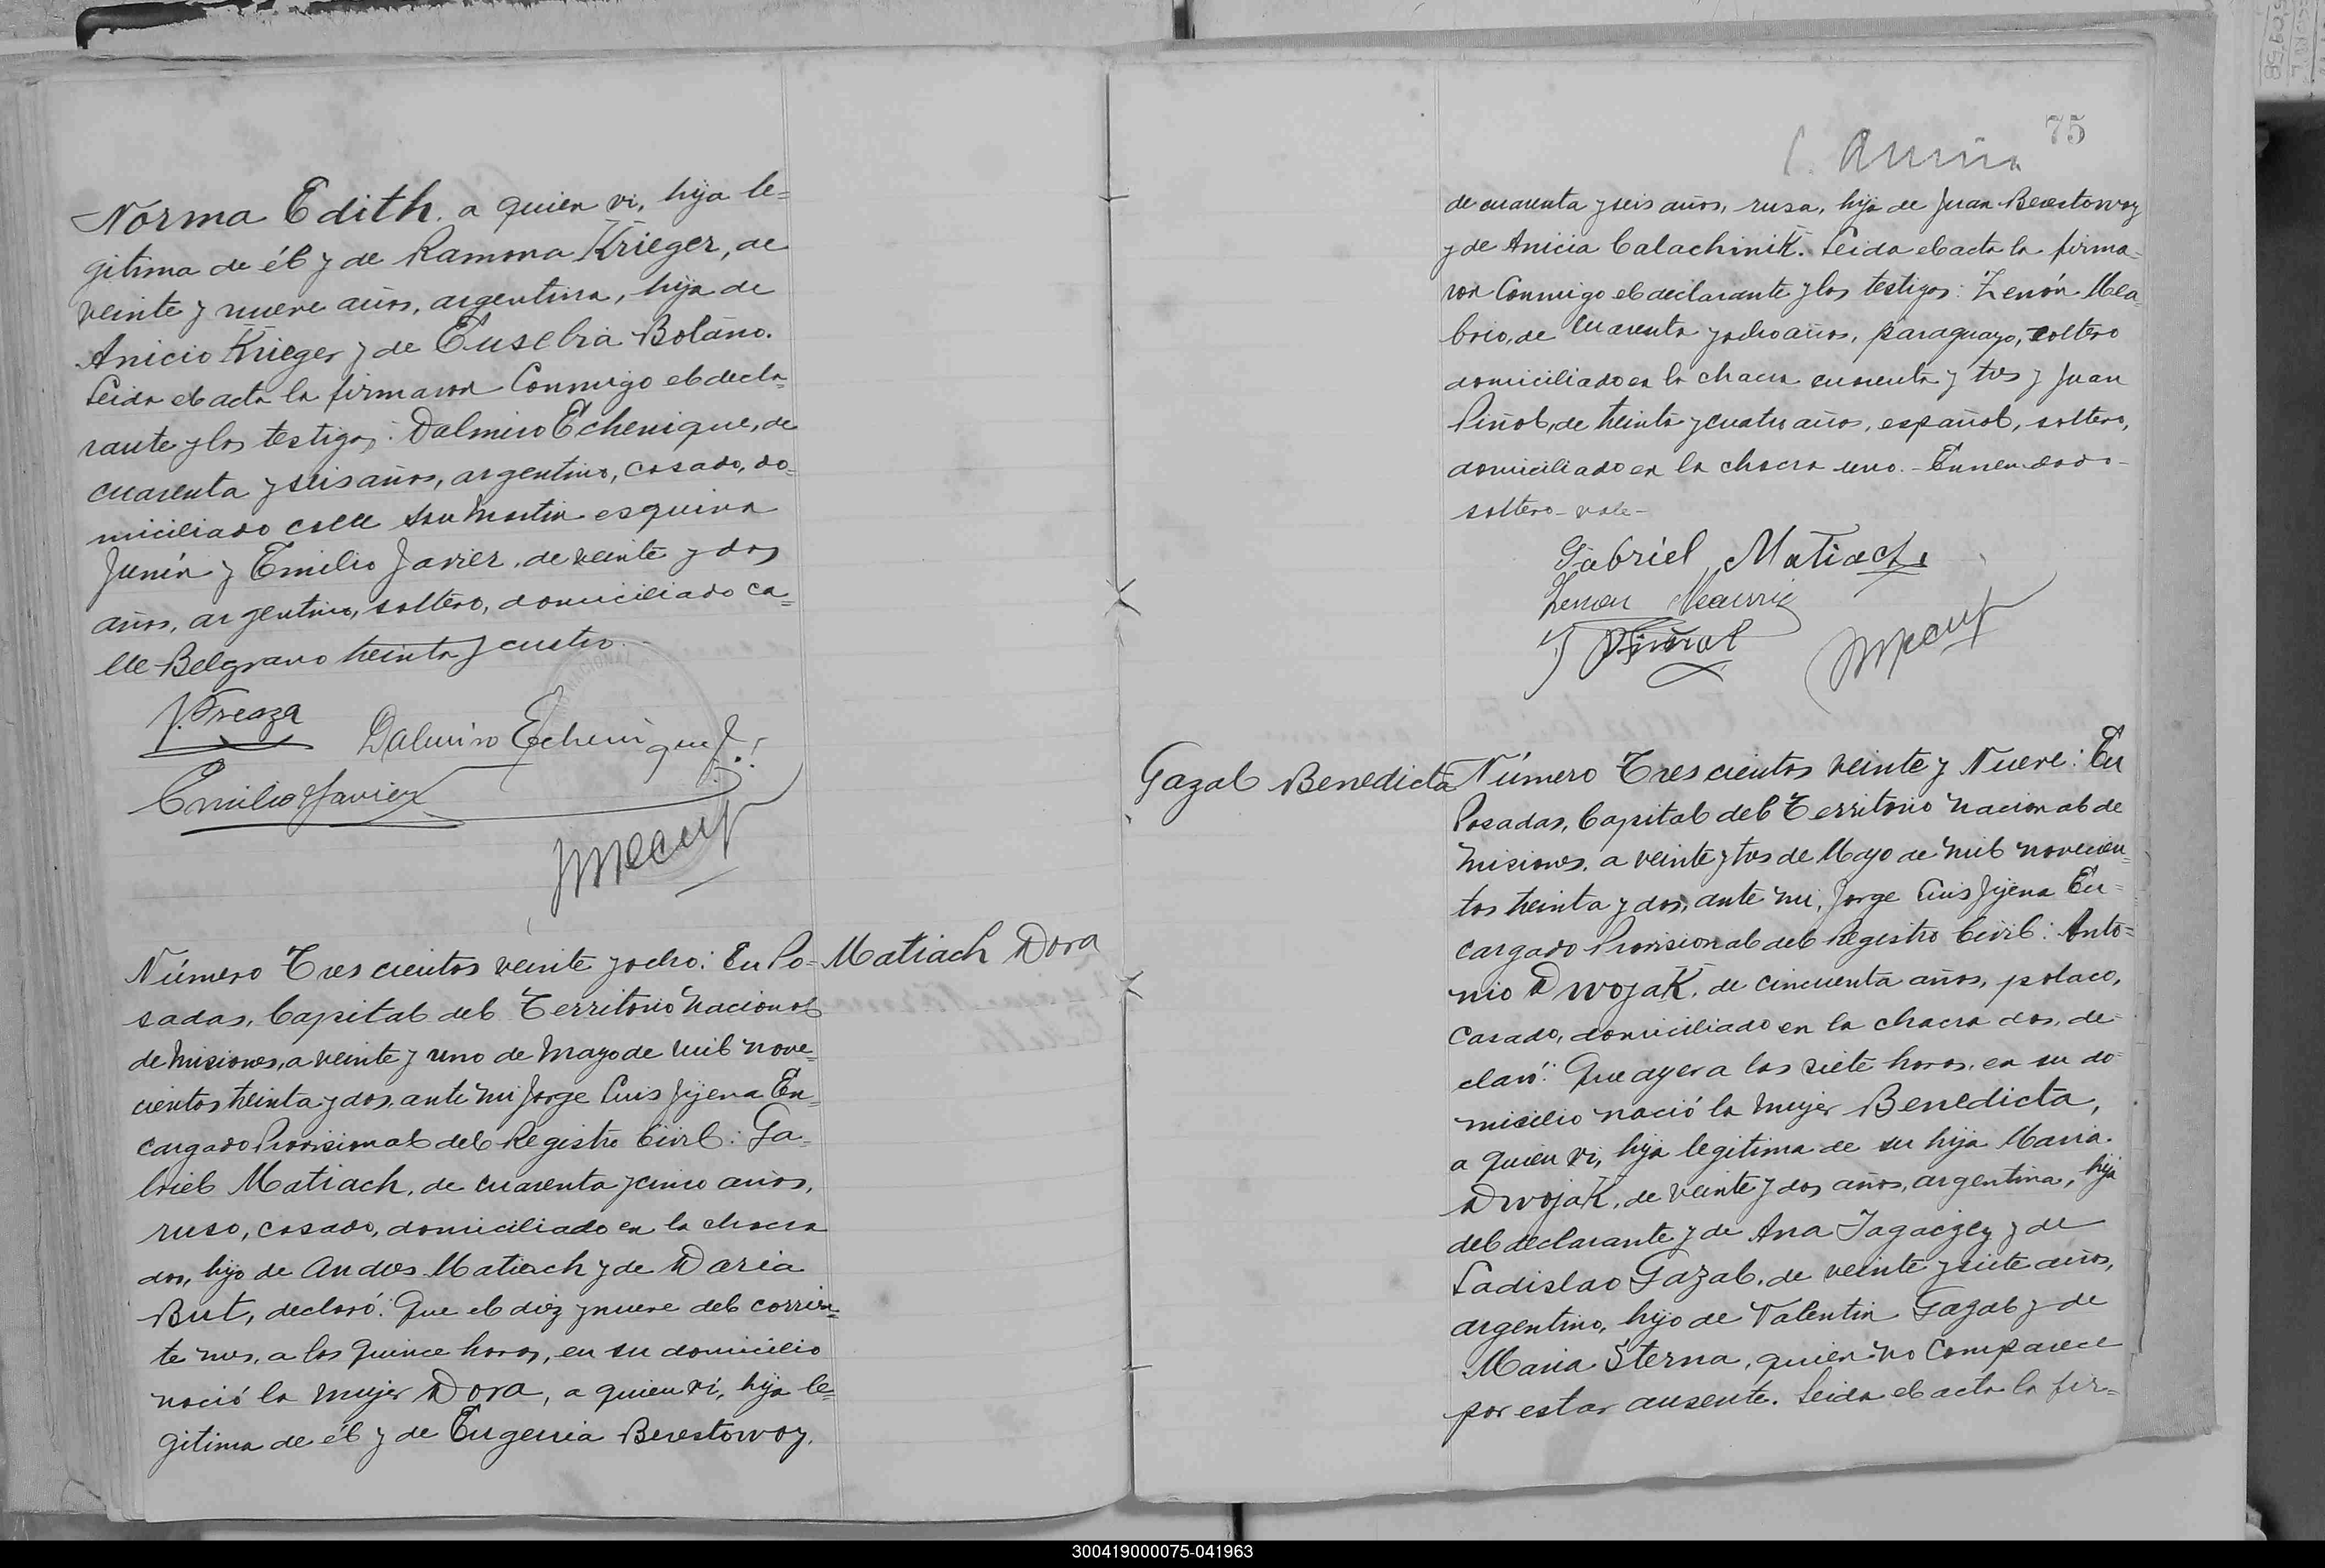 Norma Edith. a quien vi, hija le=
gitima de él y de Ramona Krieger, de
veinte y nueve años, argentina, hija de
Anicio Krieger y de Eusebia Bolaño.
Leida el acta la firmaron Conmigo el decla=
rante y los testigos: Dalmiro Echenique, de
cuarenta y seis años, argentino, casado, do=
miciliado calle San Martin esquina
Junín y Emilio Javier, de veinte y dos
años, argentino, soltero, domiciliado ca=
lle Belgrano treinta y cuatro.
Dalmiro Echenique
Emilio Javier
Número Trescientos veinte y ocho: En Po=
Matiach Dora
sadas, Capital del Territorio Nacional
de Misiones, a veinte y uno de Mayo de mil nove=
cientos treinta y dos, ante mi Jorge Luis Jijena En=
cargado Provisional del Registro Civil: Ga=
briel Matiach, de cuarenta y cinco años,
ruso, casado, domiciliado en la chacra
dos, hijo de Andres Matiach y de Daria
But, declaró: Que el diez y nueve del corrien=
te mes, a las quince horas, en su domicilio
nació la mujer Dora, a quien vi, hija le=
gitima de él y de Eugenia Berestowoy,
75
de cuarenta y seis años, rusa, hija de Juan Berestowoy
y de Anicia Calachinik. Leida el acta la firma=
ron Conmigo el declarante y los testigos: Zenón
de cuarenta y ocho años, paraguayo, soltero
domiciliado en la chacra cuarenta y tres y Juan
Piñol, de treinta y cuatro años, español, soltero,
domiciliado en la chacra uno.- Enmendado-
soltero- vale-
Gabriel Matiach
J Piñol
Gazal Benedicta
Número Trescientos veinte y Nueve: En
Posadas, Capital del Territorio Nacional de
Misiones, a veinte y tres de Mayo de mil novecien=
tos treinta y dos, ante mi, Jorge Luis Jijena En=
cargado Provisional del Registro Civil: Anto=
nio Dwojak, de cincuenta años, polaco,
casado, domiciliado en la chacra dos, de=
claró: Que ayer a las siete horas, en su do=
micilio nació la mujer Benedicta,
a quien vi, hija legitima de su hija Maria
Dwojak, de veinte y dos años, argentina, hija
del declarante y de Ana Jagaczey y de
Ladislao Gazal, de veinte y siete años,
argentino, hijo de Valentin Gazal y de
Maria Sterna, quien no Comparece
por estar ausente. Leida el acta la fir=
300419000075-041963